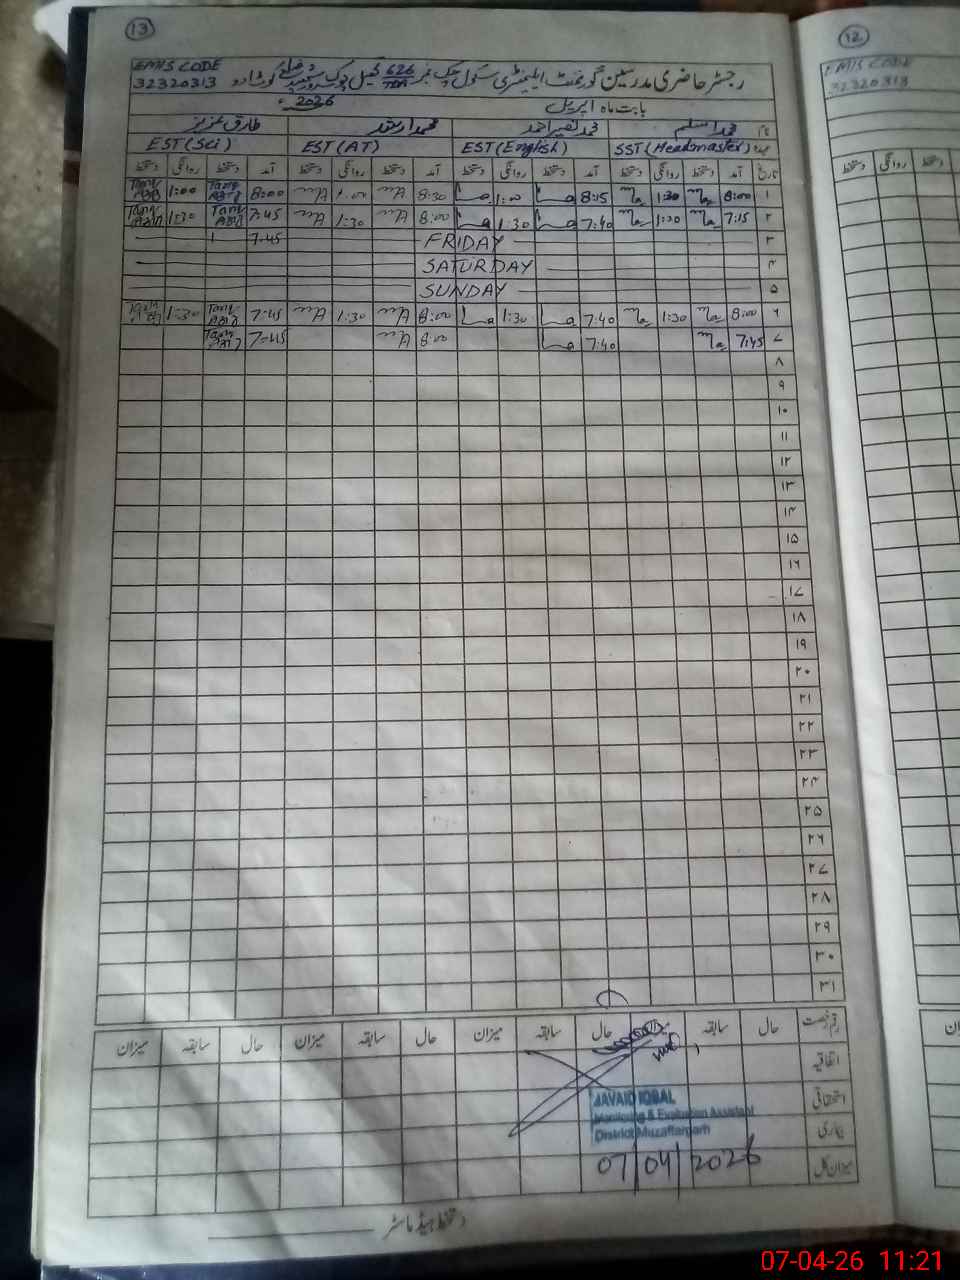 13
EMIS CODE
32320313
رجسٹر حاضری مدرسین گورنمنٹ ایلیمنٹری سکول چک نمبر 626 TDA تحصیل چوک سرور شہید ضلع کوٹ ادو
بابت ماہ اپریل 2026ء
نام محمد اسلم محمد نصیر احمد محمد ارشد طارق عزیز
عہدہ SST (Headmaster) EST (English) EST (AT) EST (Sci)
تاریخ آمد دستخط روانگی دستخط آمد دستخط روانگی دستخط آمد دستخط روانگی دستخط آمد دستخط روانگی دستخط
۱ 8:00 1:30 8:15 1:00 8:30 1:00 8:00 1:00
۲ 7:15 1:30 7:40 1:30 8:00 1:30 7:45 1:30
۳ FRIDAY 7:45
۴ SATURDAY
۵ SUNDAY
۶ 8:00 1:30 7:40 1:30 8:00 1:30 7:45 1:30
۷ 7:45 7:40 8:00 7:45
۸
۹
۱۰
۱۱
۱۲
۱۳
۱۴
۱۵
۱۶
۱۷
۱۸
۱۹
۲۰
۲۱
۲۲
۲۳
۲۴
۲۵
۲۶
۲۷
۲۸
۲۹
۳۰
۳۱
رقم رخصت حال سابقہ میزان حال سابقہ میزان حال سابقہ میزان حال سابقہ میزان
اتفاقیہ
استحقاقی
بیماری
میزان کل
JAVAID IQBAL
Monitoring & Evaluation Assistant
District Muzaffargarh
07/04/2026
دستخط ہیڈ ماسٹر
12
EMIS CODE
32320313
دستخط روانگی دستخط
07-04-26 11:21